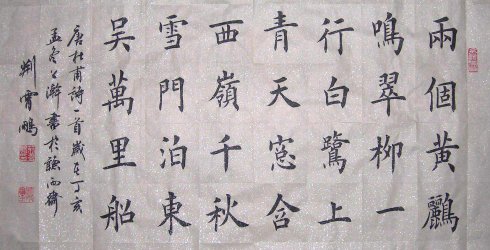 兩個黃鸝
鳴翠柳一
行白鷺上
青天窓含
西嶺千秋
雪門泊東
吳萬里船
唐杜甫詩一首歲在丁亥
孟冬書於聽雨齋
荊霄鵬